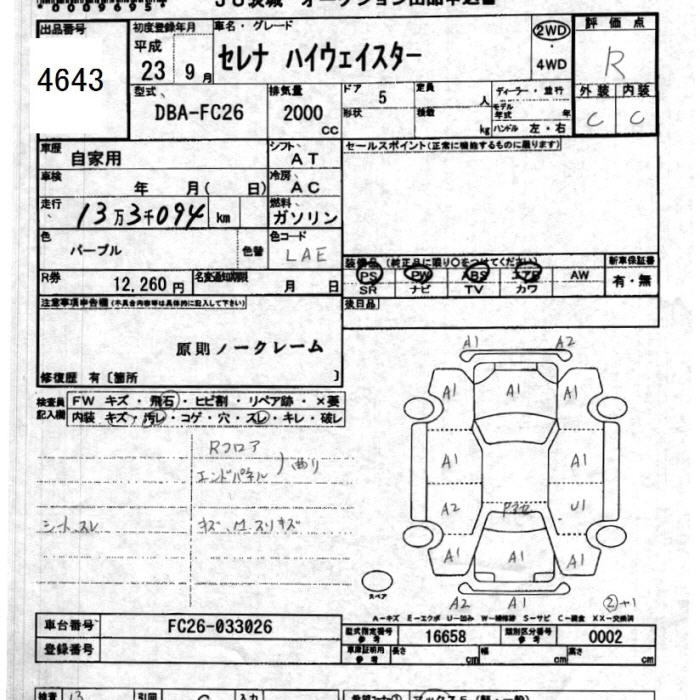 出品番号
4643
初度登録年月
平成
23 9月
車名・グレード
セレナ ハイウェイスター
2WD
4WD
評価点
R
外装 内装
C C
型式
DBA-FC26
排気量
2000
CC
ドア 5
形状
定員 人
積数 kg
ディーラー・並行
モデル年式 年
ハンドル 左・右
車歴
自家用
シフト
AT
セールスポイント(正常に機能するものに限ります)
車検
年 月( 日)
冷房
AC
走行
13万3千094 km
燃料
ガソリン
色
パープル
色替
色コード
LAE
装備品(純正品に限り○をつけてください)
PS PW ABS エアB AW
SR ナビ TV カワ
新車保証書
有・無
R券
12,260円
名変通知期限
月 日
後日品
注意事項申告欄(不具合内容等は具体的に記入して下さい)
原則ノークレーム
修復歴 有〔箇所 〕
検査員記入欄
FW キズ・飛石・ヒビ割・リペア跡・×要
内装 キズ・汚レ・コゲ・穴・スレ・キレ・破レ
Rフロア
エンドパネル
曲り
シートスレ
キズ、M、スリキズ
A1 A2
A1 A1 A1
A1 A1
A2 U1
A1 A1 A1
A2 A1
スペア
②+1
A-キズ E-エクボ U-凹み W-補修跡 S-サビ C-腐食 XX-交換済
車台番号
FC26-033026
登録番号
型式指定番号
参考
16658
類別区分番号
参考
0002
車庫証明用
参考
長さ cm
幅 cm
高さ cm